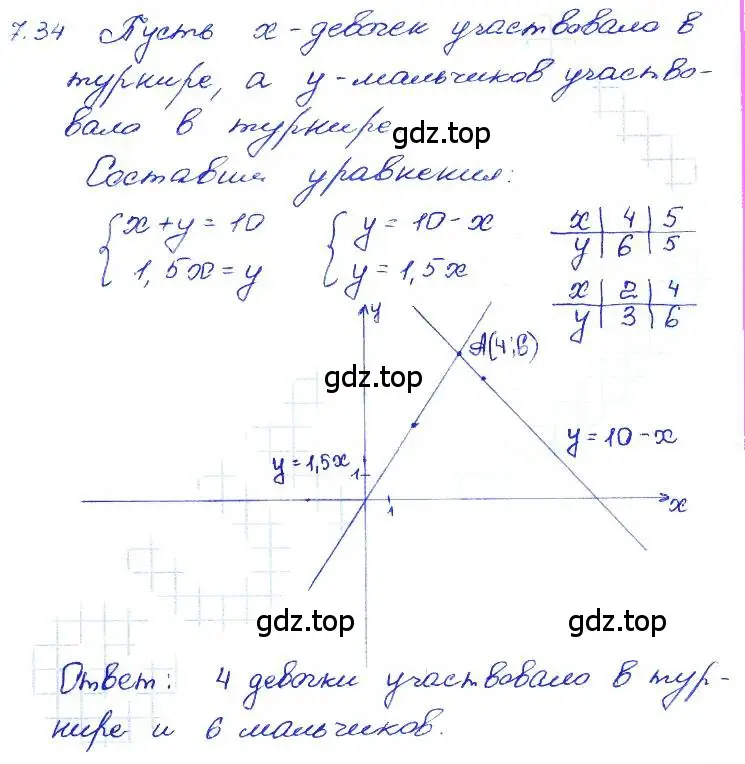 7.34 Пусть x - девочек участвовало в
турнире, а y - мальчиков участво-
вало в турнире
gdz.top
Составим уравнения:
{ x + y = 10 { y = 10 - x x | 4 | 5
{ 1,5x = y { y = 1,5x y | 6 | 5
x | 2 | 4
y | 3 | 6
y
A(4;6)
gdz.top
y = 10 - x
y = 1,5x
1
1
x
gdz.top gdz.top
Ответ: 4 девочки участвовало в тур-
нире и 6 мальчиков.